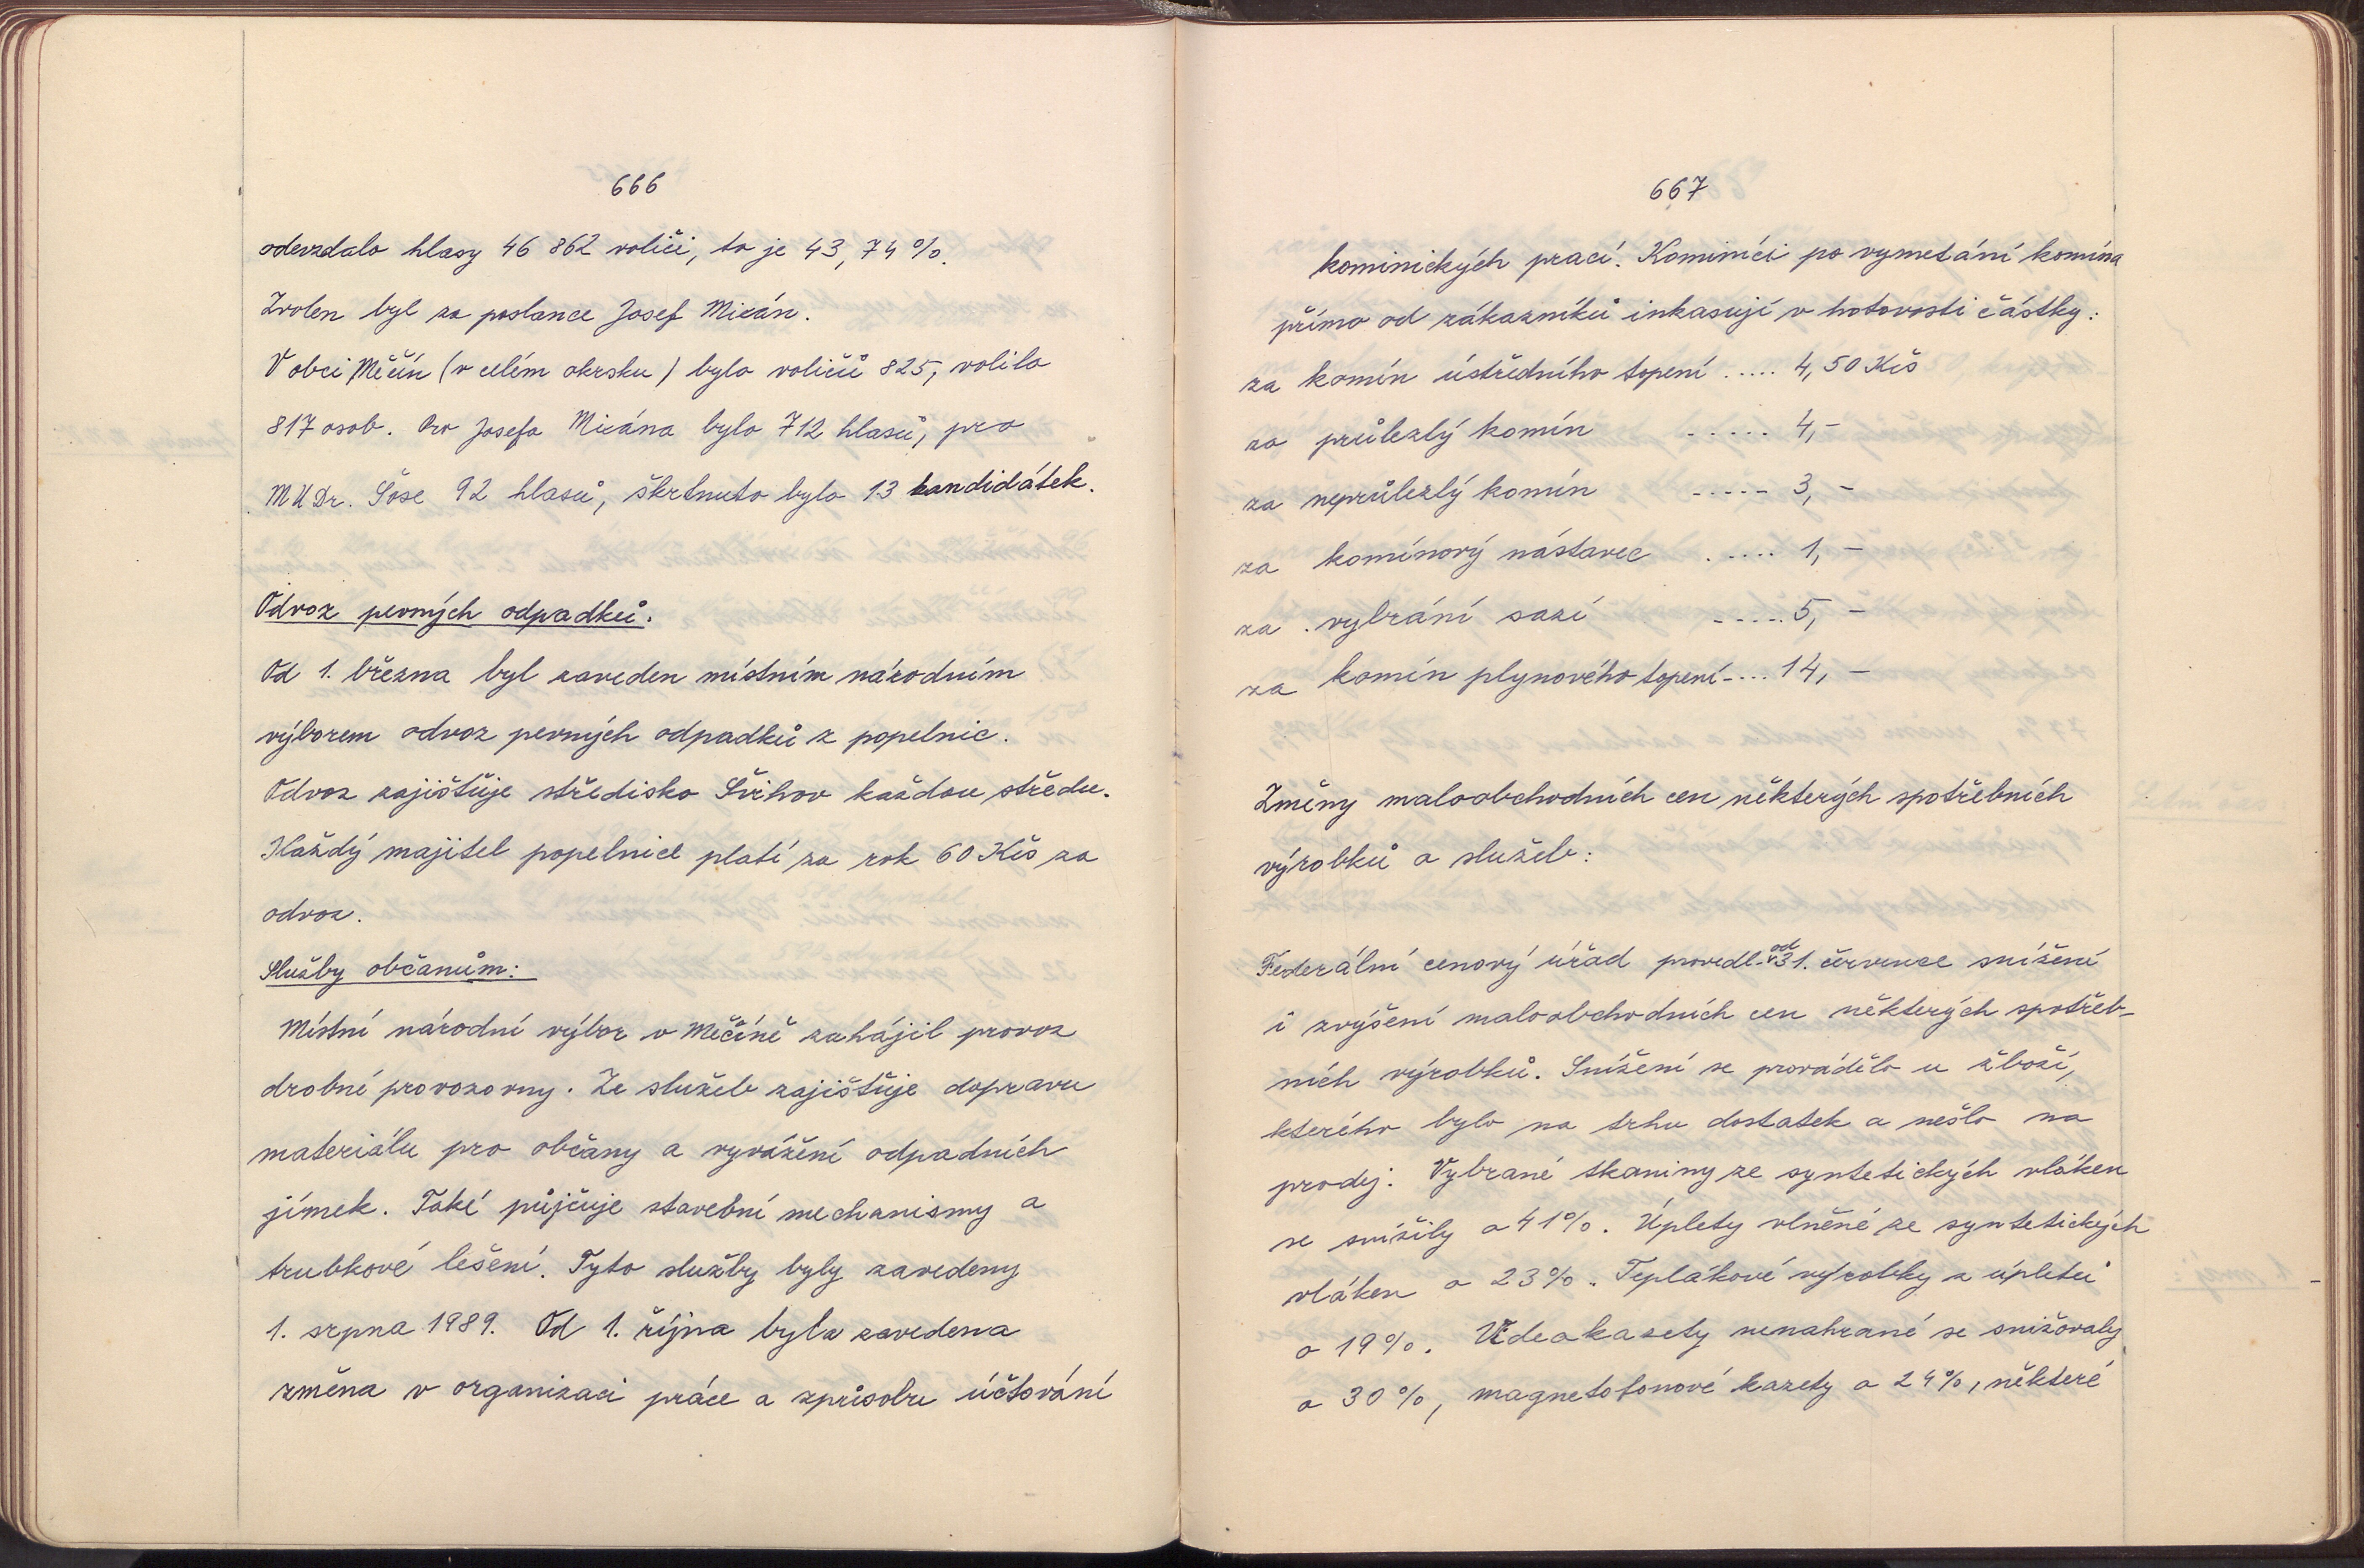 666
odevzdalo hlasy 46 862 voliči, to je 43,74 %.
Zvolen byl za poslance Josef Micán.
V obci Měčín (v celém okrsku) bylo voličů 825, volilo
817 osob. Pro Josefa Micána bylo 712 hlasů, pro
MUDr. Šose 92 hlasů, škrtnuto bylo 13 kandidátek.
Odvoz pevných odpadků.
Od 1. března byl zaveden místním národním
výborem odvoz pevných odpadků z popelnic.
Odvoz zajišťuje středisko Švihov každou středu.
Každý majitel popelnice platí za rok 60 Kčs za
odvoz.
Služby občanům:
Místní národní výbor v Měčíně zahájil provoz
drobné provozovny. Ze služeb zajišťuje dopravu
materiálu pro občany a vyvážení odpadních
jímek. Také půjčuje stavební mechanismy a
trubkové lešení. Tyto služby byly zavedeny
1. srpna 1989. Od 1. října byla zavedena
změna v organizaci práce a způsobu účtování
667
kominických prací. Kominíci po vymetání komína
přímo od zákazníků inkasují v hotovosti částky:
za komín ústředního topení ..... 4,50 Kčs
za průlezlý komín ..... 4,-
za neprůlezlý komín ..... 3,-
za komínový nástavec ..... 1,-
za vybrání sazí ..... 5,-
za komín plynového topení .... 14,-
Změny maloobchodních cen některých spotřebních
výrobků a služeb:
Federální cenový úřad provedl od 31. července snížení
i zvýšení maloobchodních cen některých spotřeb-
ních výrobků. Snížení se provádělo u zboží,
kterého bylo na trhu dostatek a nešlo na
prodej. Vybrané tkaniny ze syntetických vláken
se snížily o 41%. Úplety vlněné ze syntetických
vláken o 23%. Teplákové výrobky z úpletů
o 19%. Videokazety nenahrané se snižovaly
o 30%, magnetofonové kazety o 24%, některé